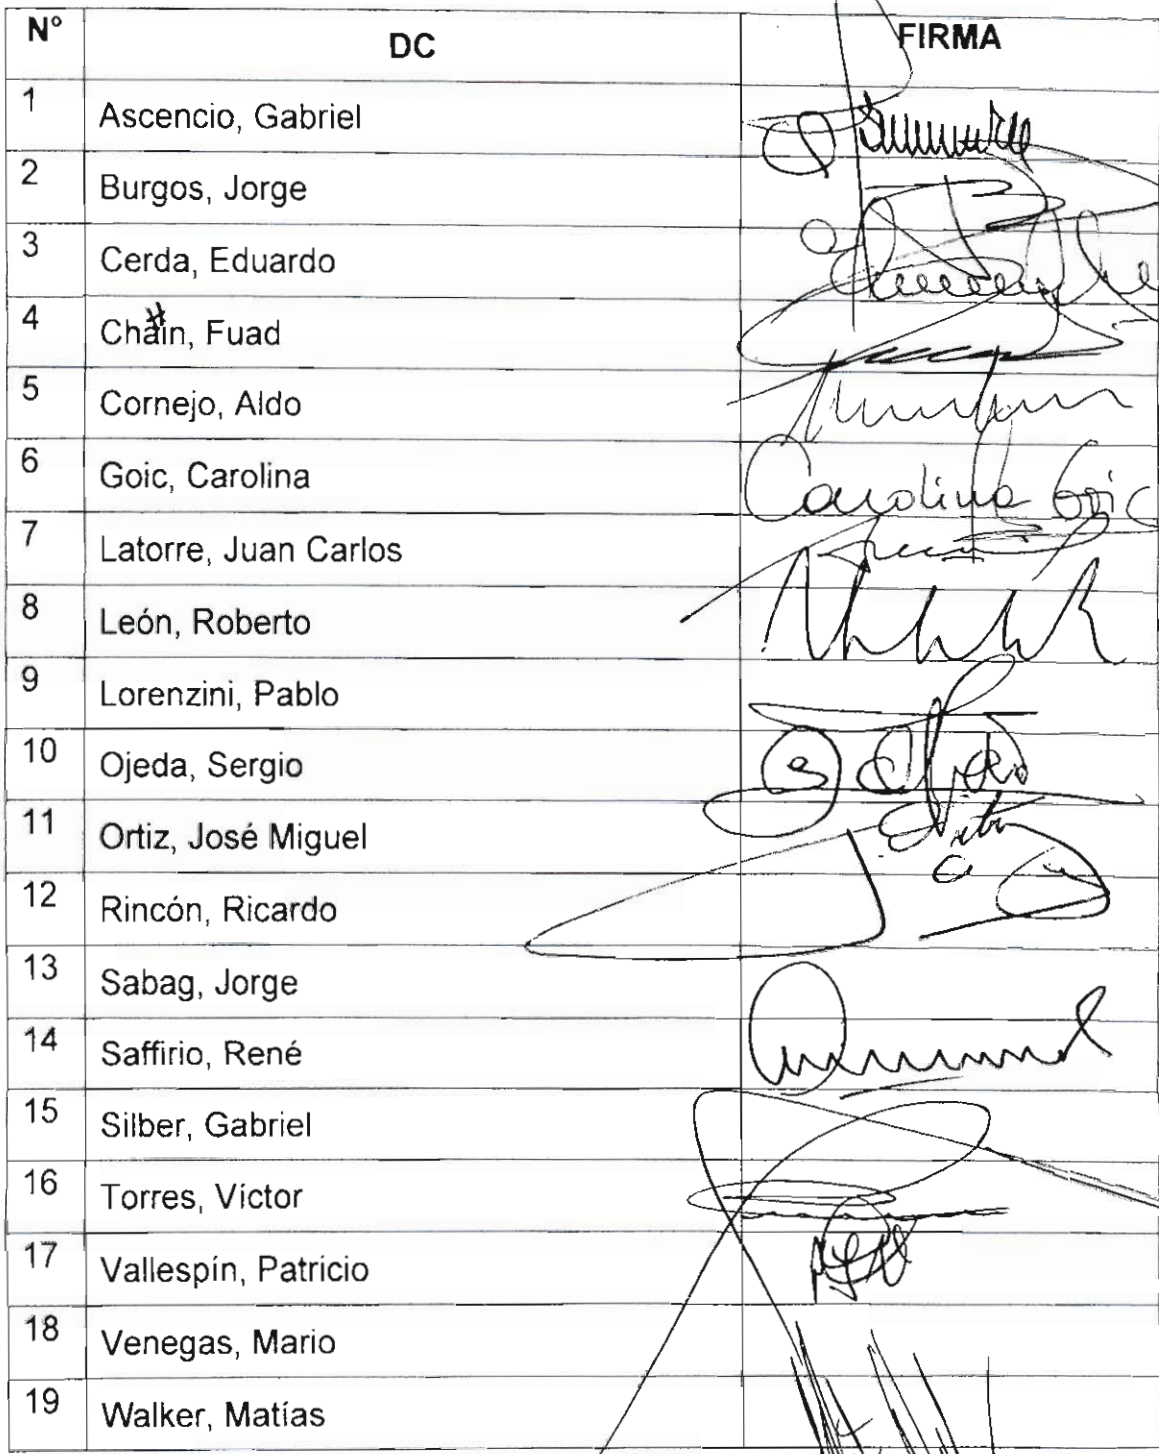 N° DC FIRMA
1 Ascencio, Gabriel
2 Burgos, Jorge
3 Cerda, Eduardo
4 Chain, Fuad
5 Cornejo, Aldo
6 Goic, Carolina Carolina Goic
7 Latorre, Juan Carlos
8 León, Roberto
9 Lorenzini, Pablo
10 Ojeda, Sergio
11 Ortiz, José Miguel
12 Rincón, Ricardo
13 Sabag, Jorge
14 Saffirio, René
15 Silber, Gabriel
16 Torres, Víctor
17 Vallespín, Patricio
18 Venegas, Mario
19 Walker, Matías